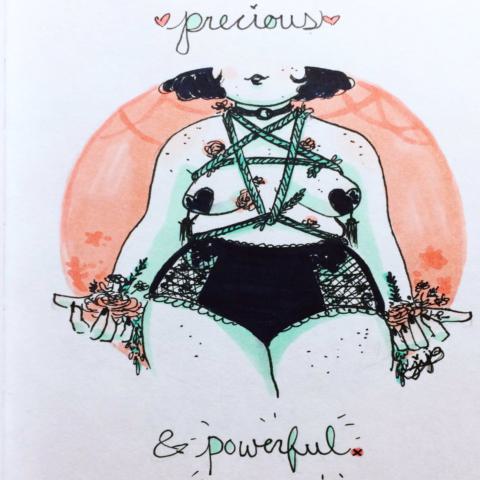 precious
& powerful.